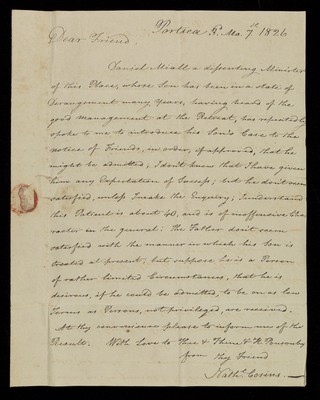 Portsea 3d. Mo. 7th 1826
Dear Friend
Daniel Miall a dissenting Minister
of this Place, whose Son has been in a state of
Derangement many Years, having heard of the
good management at the Retreat, has repeatedly
spoke to me to introduce his Son's Case to the
notice of Friends, in order, if approved, that he
might be admitted; I don't know that I have given
him any Expectation of Success; but he don't seem
satisfied, unless I make the Enquiry; I understand
this Patient is about 40, and is of inoffensive Cha
racter in the general: The Father don't seem
satisfied with the manner in which his Son is
treated at present; but suppose he is a Person
of rather limited Circumstances, that he is
desirous, if he could be admitted, to be on as low
Terms as Persons, not privileged, are received.
At thy convenience please to inform me of the
Result. With Love to Thee & Thine &
from thy Friend
Nathl. Cosins.